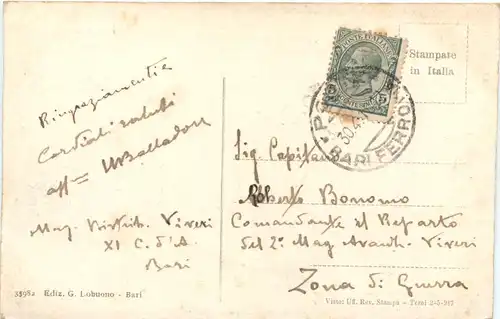 Ringraziamenti e
Cordiali saluti
aff=
Mag. Distrib. Viveri
XI C. d'A
Bari
33982 Ediz. G. Lobuono - Bari
POSTE ITALIANE
5 5
30.4.
BARI FERROVIA
Stampate
in Italia
Sig. Capitano
Roberto Bonomo
Comandante il Reparto
del 2° Mag. Avanz. Viveri
Zona di Guerra
Visto: Uff. Rev. Stampa - Terni 2-5-917